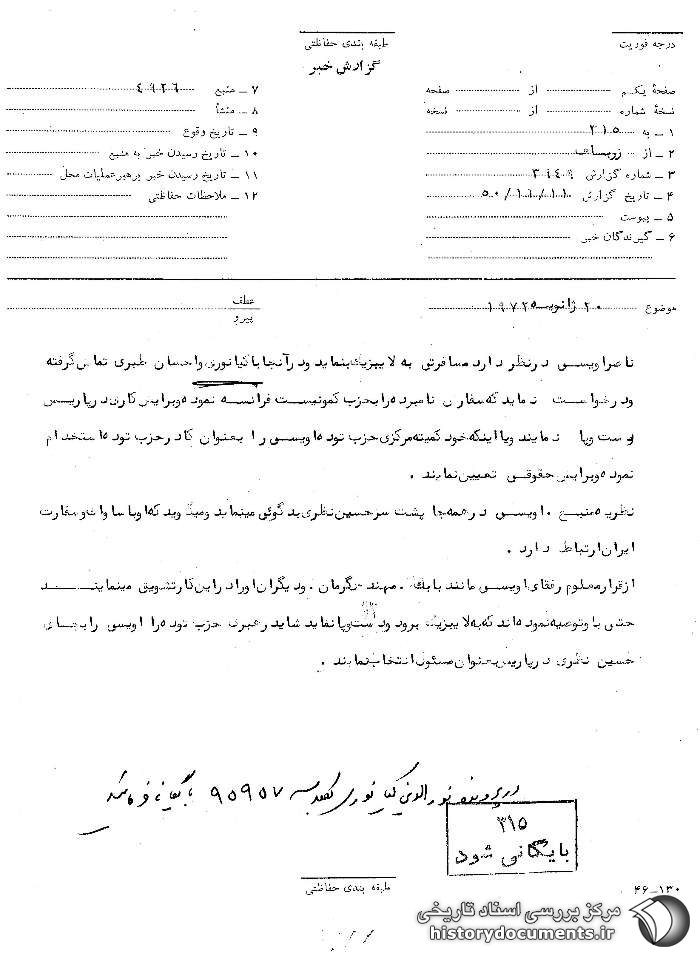 درجه فوریت
طبقه بندی حفاظتی
گزارش خبر
صفحهٔ یکم از صفحه
نسخهٔ شماره از نسخه
۱ ـ به ۳۱۵
۲ ـ از
۳ ـ شماره گزارش ۳۹۴۹
۴ ـ تاریخ گزارش ۵۰/۱۱/۱۱
۵ ـ پیوست
۶ ـ گیرندگان خبر
۷ ـ منبع ۴۹۲۶
۸ ـ منشأ
۹ ـ تاریخ وقوع
۱۰ ـ تاریخ رسیدن خبر به منبع
۱۱ ـ تاریخ رسیدن خبر برهبر عملیات محل
۱۲ ـ ملاحظات حفاظتی
موضوع ۲۰ ژانویه ۱۹۷۲
عطف
پیرو
ناصر اویسی در نظر دارد مسافرتی به لایپزیک بنماید و در آنجا با کیانوری و احسان طبری تماس گرفته
و درخواست نماید که سفارش نامبرده را بحزب کمونیست فرانسه نموده و برایش کاری در پاریس
دست و پا نمایند و یا اینکه خود کمیته مرکزی حزب توده اویسی را بعنوان کادر حزب توده استخدام
نموده و برایش حقوقی تعیین نمایند .
نظریه منبع . اویسی در همه جا پشت سر حسین نظری بد گوئی مینماید و میگوید که او با ساواک و سفارت
ایران ارتباط دارد .
از قرار معلوم رفقای اویسی مانند بابک . مهندجگرمان . و دیگران او را در این کار تشویق مینمایند
حتی باو توصیه نموده اند که به لایپزیک برود و دست و پا نماید شاید رهبری حزب توده را اویسی را بجای
حسین نظری در پاریس بعنوان مسئول انتخاب نمایند .
در پرونده نورالدین کیانوری بکلاسه ۹۵۹۵۷ بایگانی فرمائید
۳۱۵
بایگانی شود
طبقه بندی حفاظتی
۴۶ـ۱۳۰
مرکز بررسی اسناد تاریخی
historydocuments.ir